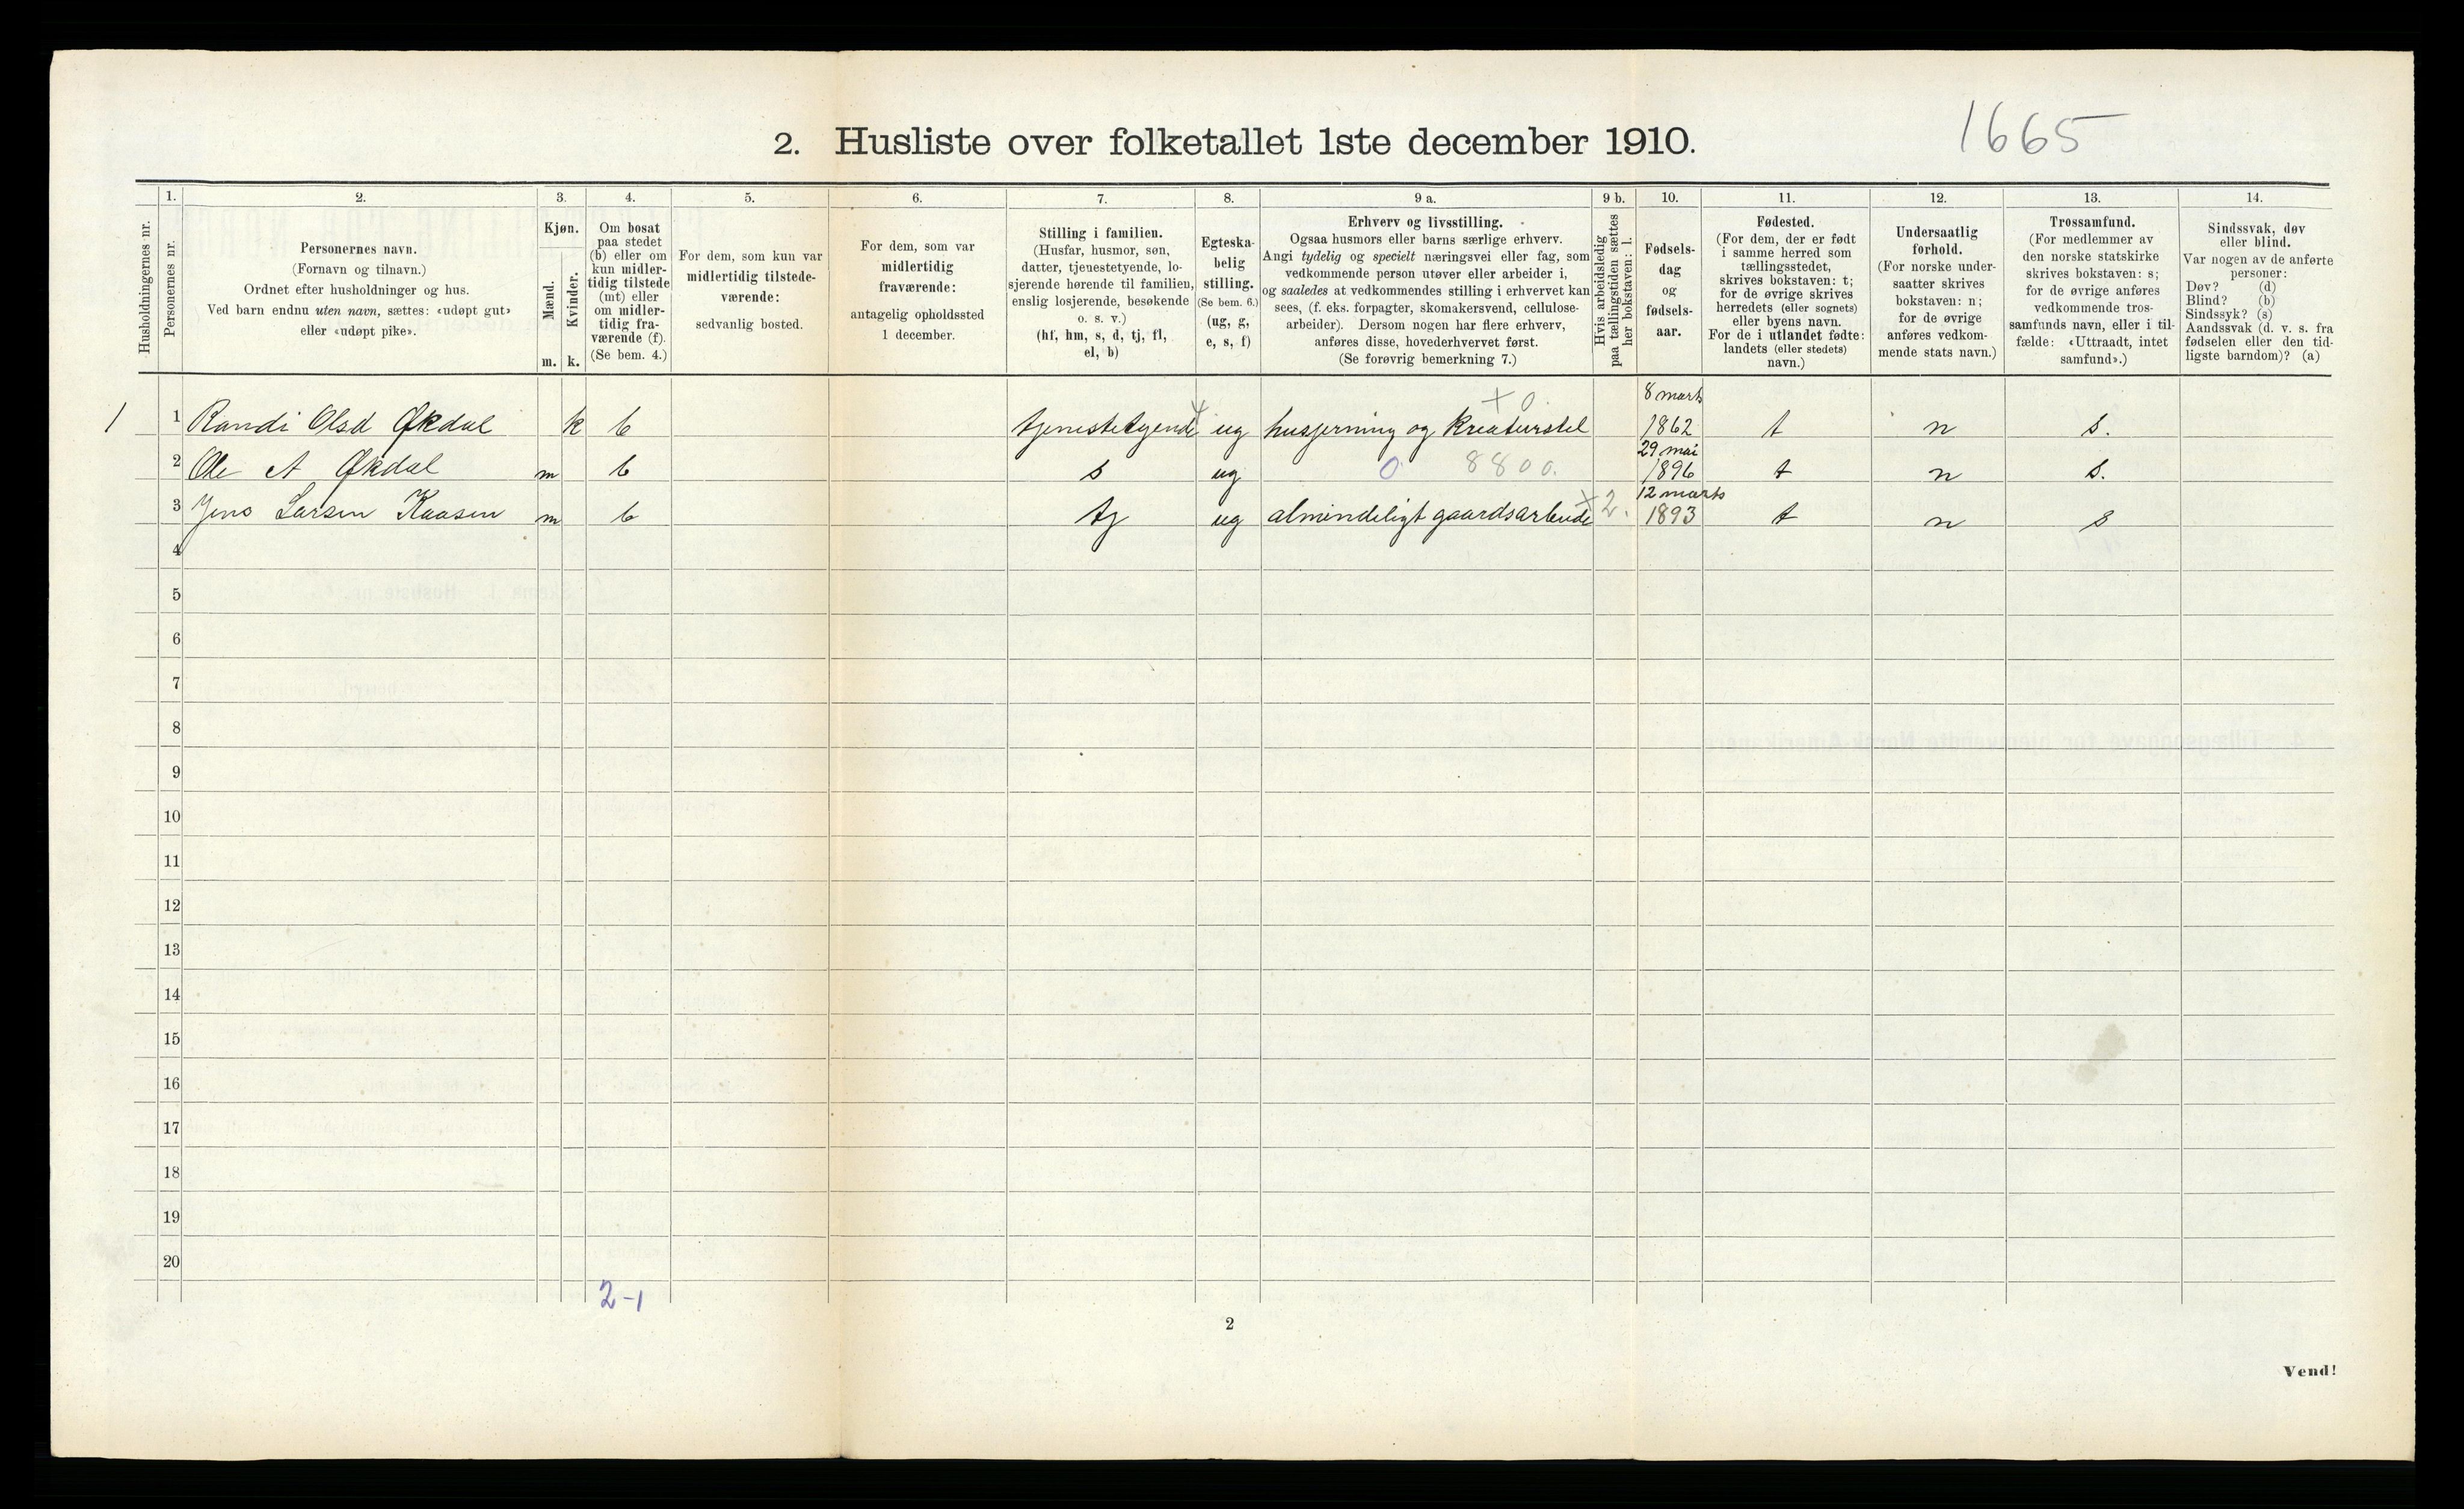 1665
2. Husliste over folketallet 1ste december 1910.
Husholdningernes nr.
1.
Personernes nr.
2.
Personernes navn.
(Fornavn og tilnavn.)
Ordnet efter husholdninger og hus.
Ved barn endnu uten navn, sættes: «udøpt gut»
eller «udøpt pike».
3.
Kjøn.
Mænd.
Kvinder.
m. k.
4.
Om bosat
paa stedet
(b) eller om
kun midler-
tidig tilstede
(mt) eller
om midler-
tidig fra-
værende (f).
(Se bem. 4.)
5.
For dem, som kun var
midlertidig tilstede-
værende:
sedvanlig bosted.
6.
For dem, som var
midlertidig
fraværende:
antagelig opholdssted
1 december.
7.
Stilling i familien.
(Husfar, husmor, søn,
datter, tjenestetyende, lo-
sjerende hørende til familien,
enslig losjerende, besøkende
o. s. v.)
(hf, hm, s, d, tj, fl,
el, b)
8.
Egteska-
belig
stilling.
(Se bem. 6.)
(ug, g,
e, s, f)
9 a.
Erhverv og livsstilling.
Ogsaa husmors eller barns særlige erhverv.
Angi tydelig og specielt næringsvei eller fag, som
vedkommende person utøver eller arbeider i,
og saaledes at vedkommendes stilling i erhvervet kan
sees, (f. eks. forpagter, skomakersvend, cellulose-
arbeider). Dersom nogen har flere erhverv,
anføres disse, hovederhvervet først.
(Se forøvrig bemerkning 7.)
9 b.
Hvis arbeidsledig
paa tællingstiden sættes
her bokstaven: l.
10.
Fødsels-
dag
og
fødsels-
aar.
11.
Fødested.
(For dem, der er født
i samme herred som
tællingsstedet,
skrives bokstaven: t;
for de øvrige skrives
herredets (eller sognets)
eller byens navn.
For de i utlandet fødte:
landets (eller stedets)
navn.)
12.
Undersaatlig
forhold.
(For norske under-
saatter skrives
bokstaven: n;
for de øvrige
anføres vedkom-
mende stats navn.)
13.
Trossamfund.
(For medlemmer av
den norske statskirke
skrives bokstaven: s;
for de øvrige anføres
vedkommende tros-
samfunds navn, eller i til-
fælde: «Uttraadt, intet
samfund».)
14.
Sindssvak, døv
eller blind.
Var nogen av de anførte
personer:
Døv? (d)
Blind? (b)
Sindssyk? (s)
Aandssvak (d. v. s. fra
fødselen eller den tid-
ligste barndom)? (a)
+ 0 8 marts
1 1 Randi Olsd Økdal k b tjenestetyende ug husgerning og kreaturstel 1862 t n s.
29 mai
2 Ole A Økdal m b s ug 0 8800. 1896 t n s.
12 marts
3 Jens Larsen Kaasen m b tj ug almindeligt gaardsarbeide + 2. 1893 t n s
4
5
6
7
8
9
10
11
12
13
14
15
16
17
18
19
20
2-1
2
Vend!